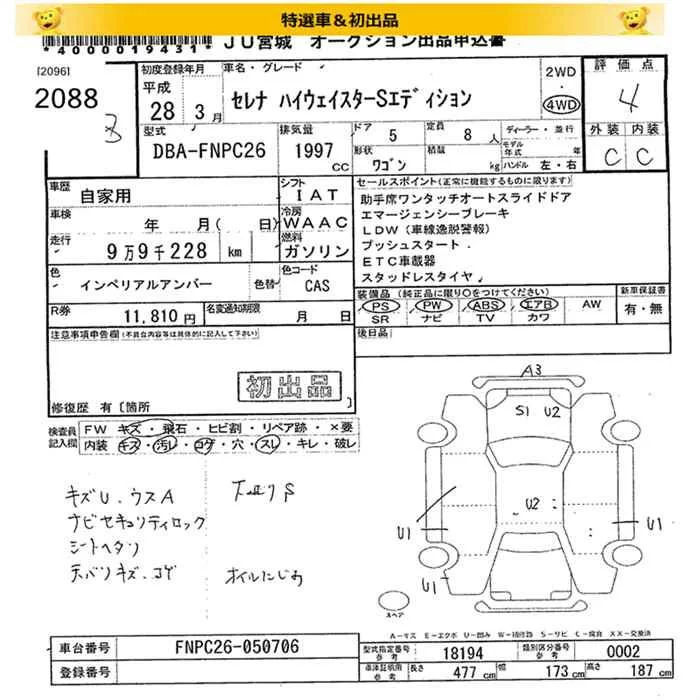 特選車&初出品
*4000019431* JU宮城 オークション出品申込書
[2096]
2088
初度登録年月
平成
28年3月
車名・グレード
セレナ ハイウェイスターSエディション
2WD
・
4WD
評価点
4
型式
DBA-FNPC26
排気量
1997
CC
ドア
5
定員
8人
形状
ワゴン
積載
kg
ディーラー・並行
モデル年式 年
ハンドル 左・右
外装 内装
C C
車歴
自家用
シフト
IAT
車検
年 月( 日)
冷房
WAAC
走行
9万9千228 km
燃料
ガソリン
色
インペリアルアンバー
色替
色コード
CAS
R券
11,810円
名変通知期限
月 日
セールスポイント(正常に機能するものに限ります)
助手席ワンタッチオートスライドドア
エマージェンシーブレーキ
LDW(車線逸脱警報)
プッシュスタート
ETC車載器
スタッドレスタイヤ
装備品(純正品に限り○をつけてください)
PS PW ABS エアB AW
SR ナビ TV カワ
新車保証書
有・無
後日品
注意事項申告欄(不具合内容等は具体的に記入して下さい)
初出品
修復歴 有〔箇所
検査員記入欄
FW キズ・飛石・ヒビ割・リペア跡・×要
内装 キズ・汚レ・コゲ・穴・スレ・キレ・破レ
キズU、ウスA
ナビセキュリティロック
シートヘタリ
天バリキズ、コゲ
下廻りS
オイルにじみ
A3
S1 U2
U2
U1
U1
U1
スペア
A-キズ E-エクボ U-凹み W-補修跡 S-サビ C-腐食 XX-交換済
車台番号
FNPC26-050706
登録番号
型式指定番号
参考
18194
類別区分番号
参考
0002
車庫証明用
参考
長さ 477 cm 幅 173 cm 高さ 187 cm